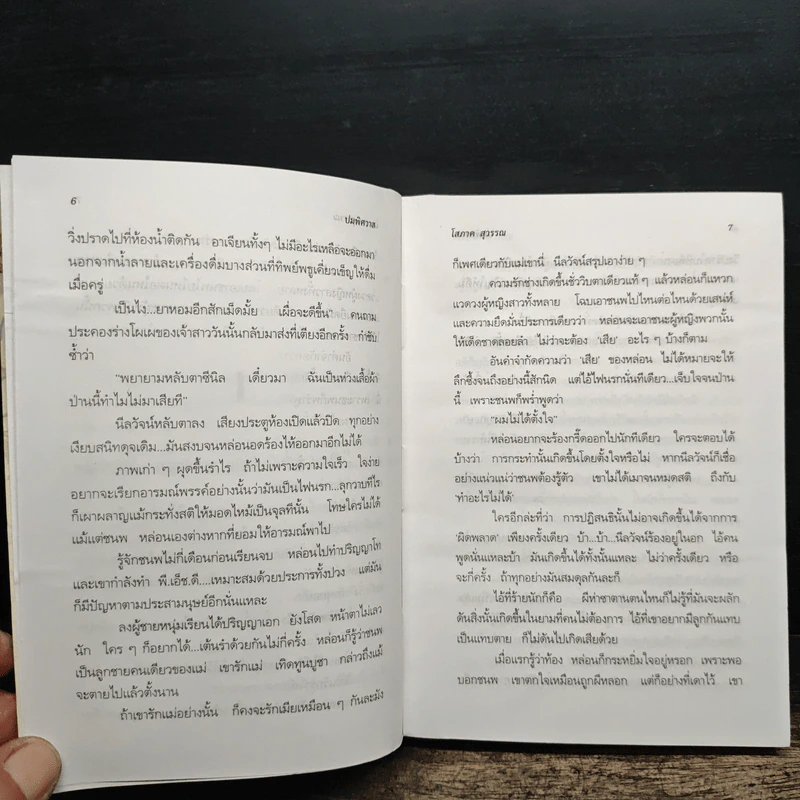 6
ปมพิศวาส
วิ่งปราดไปที่ห้องน้ำติดกัน อาเจียนทั้งๆ ไม่มีอะไรเหลือจะออกมา
นอกจากน้ำลายและเครื่องดื่มบางส่วนที่ทิพย์พธูเคี่ยวเข็ญให้ดื่ม
เมื่อครู่
เป็นไง...ยาหอมอีกสักเม็ดมั้ย เผื่อจะดีขึ้น" คนถาม
ประคองร่างโผเผของเจ้าสาววันนั้นกลับมาส่งที่เตียงอีกครั้ง กำชับ
ซ้ำว่า
"พยายามหลับตาซีนิล เดี๋ยวมา ฉันเป็นห่วงเสื้อผ้า
ป่านนี้ทำไมไม่มาเสียที"
นีลวัจน์หลับตาลง เสียงประตูห้องเปิดแล้วปิด ทุกอย่าง
เงียบสนิทดุจเดิม...มันสงบจนหล่อนอดร้องไห้ออกมาอีกไม่ได้
ภาพเก่า ๆ ผุดขึ้นรำไร ถ้าไม่เพราะความใจเร็ว ใจง่าย
อยากจะเรียกอารมณ์พรรค์อย่างนั้นว่ามันเป็นไฟนรก...ลุกวาบทีไร
ก็เผาผลาญแม้กระทั่งสติให้มอดไหม้เป็นจุลทีนั้น โทษใครไม่ได้
แม้แต่ชนพ หล่อนเองต่างหากที่ยอมให้อารมณ์พาไป
รู้จักชนพไม่กี่เดือนก่อนเรียนจบ หล่อนไปทำปริญญาโท
และเขากำลังทำ พี.เอ็ช.ดี....เหมาะสมด้วยประการทั้งปวง แต่มัน
ก็มีปัญหาตามประสามนุษย์อีกนั่นแหละ
ลงผู้ชายหนุ่มเรียนได้ปริญญาเอก ยังโสด หน้าตาไม่เลว
นัก ใคร ๆ ก็อยากได้...เต้นรำด้วยกันไม่กี่ครั้ง หล่อนก็รู้ว่าชนพ
เป็นลูกชายคนเดียวของแม่ เขารักแม่ เทิดทูนบูชา กล่าวถึงแม้
จะตายไปแล้วตั้งนาน
ถ้าเขารักแม่อย่างนั้น ก็คงจะรักเมียเหมือน ๆ กันละมัง
โสภาค สุวรรณ
7
ก็เพศเดียวกับแม่เขานี่ นีลวัจน์สรุปเอาง่าย ๆ
ความรักช่างเกิดขึ้นชั่ววิบตาเดียวแท้ ๆ แล้วหล่อนก็แหวก
แวดวงผู้หญิงสาวทั้งหลาย โฉบเอาชนพไปไหนต่อไหนด้วยเสน่ห์
และความยึดมั่นประการเดียวว่า หล่อนจะเอาชนะผู้หญิงพวกนั้น
ให้เด็ดขาดลอยลำ ไม่ว่าจะต้อง 'เสีย' อะไร ๆ บ้างก็ตาม
อันคำจำกัดความว่า 'เสีย' ของหล่อน ไม่ได้หมายจะให้
ลึกซึ้งจนถึงอย่างนี้สักนิด แต่ไอ้ไฟนรกนั่นทีเดียว...เจ็บใจจนป่าน
นี้ เพราะชนพก็พร่ำพูดว่า
"ผมไม่ได้ตั้งใจ"
หล่อนอยากจะร้องกรี๊ดออกไปนักทีเดียว ใครจะตอบได้
บ้างว่า การกระทำนั้นเกิดขึ้นโดยตั้งใจหรือไม่ หากนีลวัจน์ก็เชื่อ
อย่างแน่แน่ว่าชนพต้องรู้ตัว เขาไม่ได้เมาจนหมดสติ ถึงกับ
'ทำอะไรไม่ได้'
ใครอีกล่ะที่ว่า การปฏิสนธินั้นไม่อาจเกิดขึ้นได้จากการ
'ผิดพลาด' เพียงครั้งเดียว บ้า...บ้า...นีลวัจน์ร้องอยู่ในอก ไอ้คน
พูดนั่นแหละบ้า มันเกิดขึ้นได้ทั้งนั้นแหละ ไม่ว่าครั้งเดียว หรือ
จะกี่ครั้ง ถ้าทุกอย่างมันสมดุลกันละก็
ไอ้ที่ร้ายนักก็คือ ผีห่าซาตานตนไหนก็ไม่รู้ที่มันจะผลัก
ดันสิ่งนั้นเกิดขึ้นในยามที่คนไม่ต้องการ ไอ้ที่เขาอยากมีลูกกันแทบ
เป็นแทบตาย ก็ไม่ดันไปเกิดเสียด้วย
เมื่อแรกรู้ว่าท้อง หล่อนก็กระหยิ่มใจอยู่หรอก เพราะพอ
บอกชนพ เขาตกใจเหมือนถูกผีหลอก แต่ก็อย่างที่เดาไว้ เขา